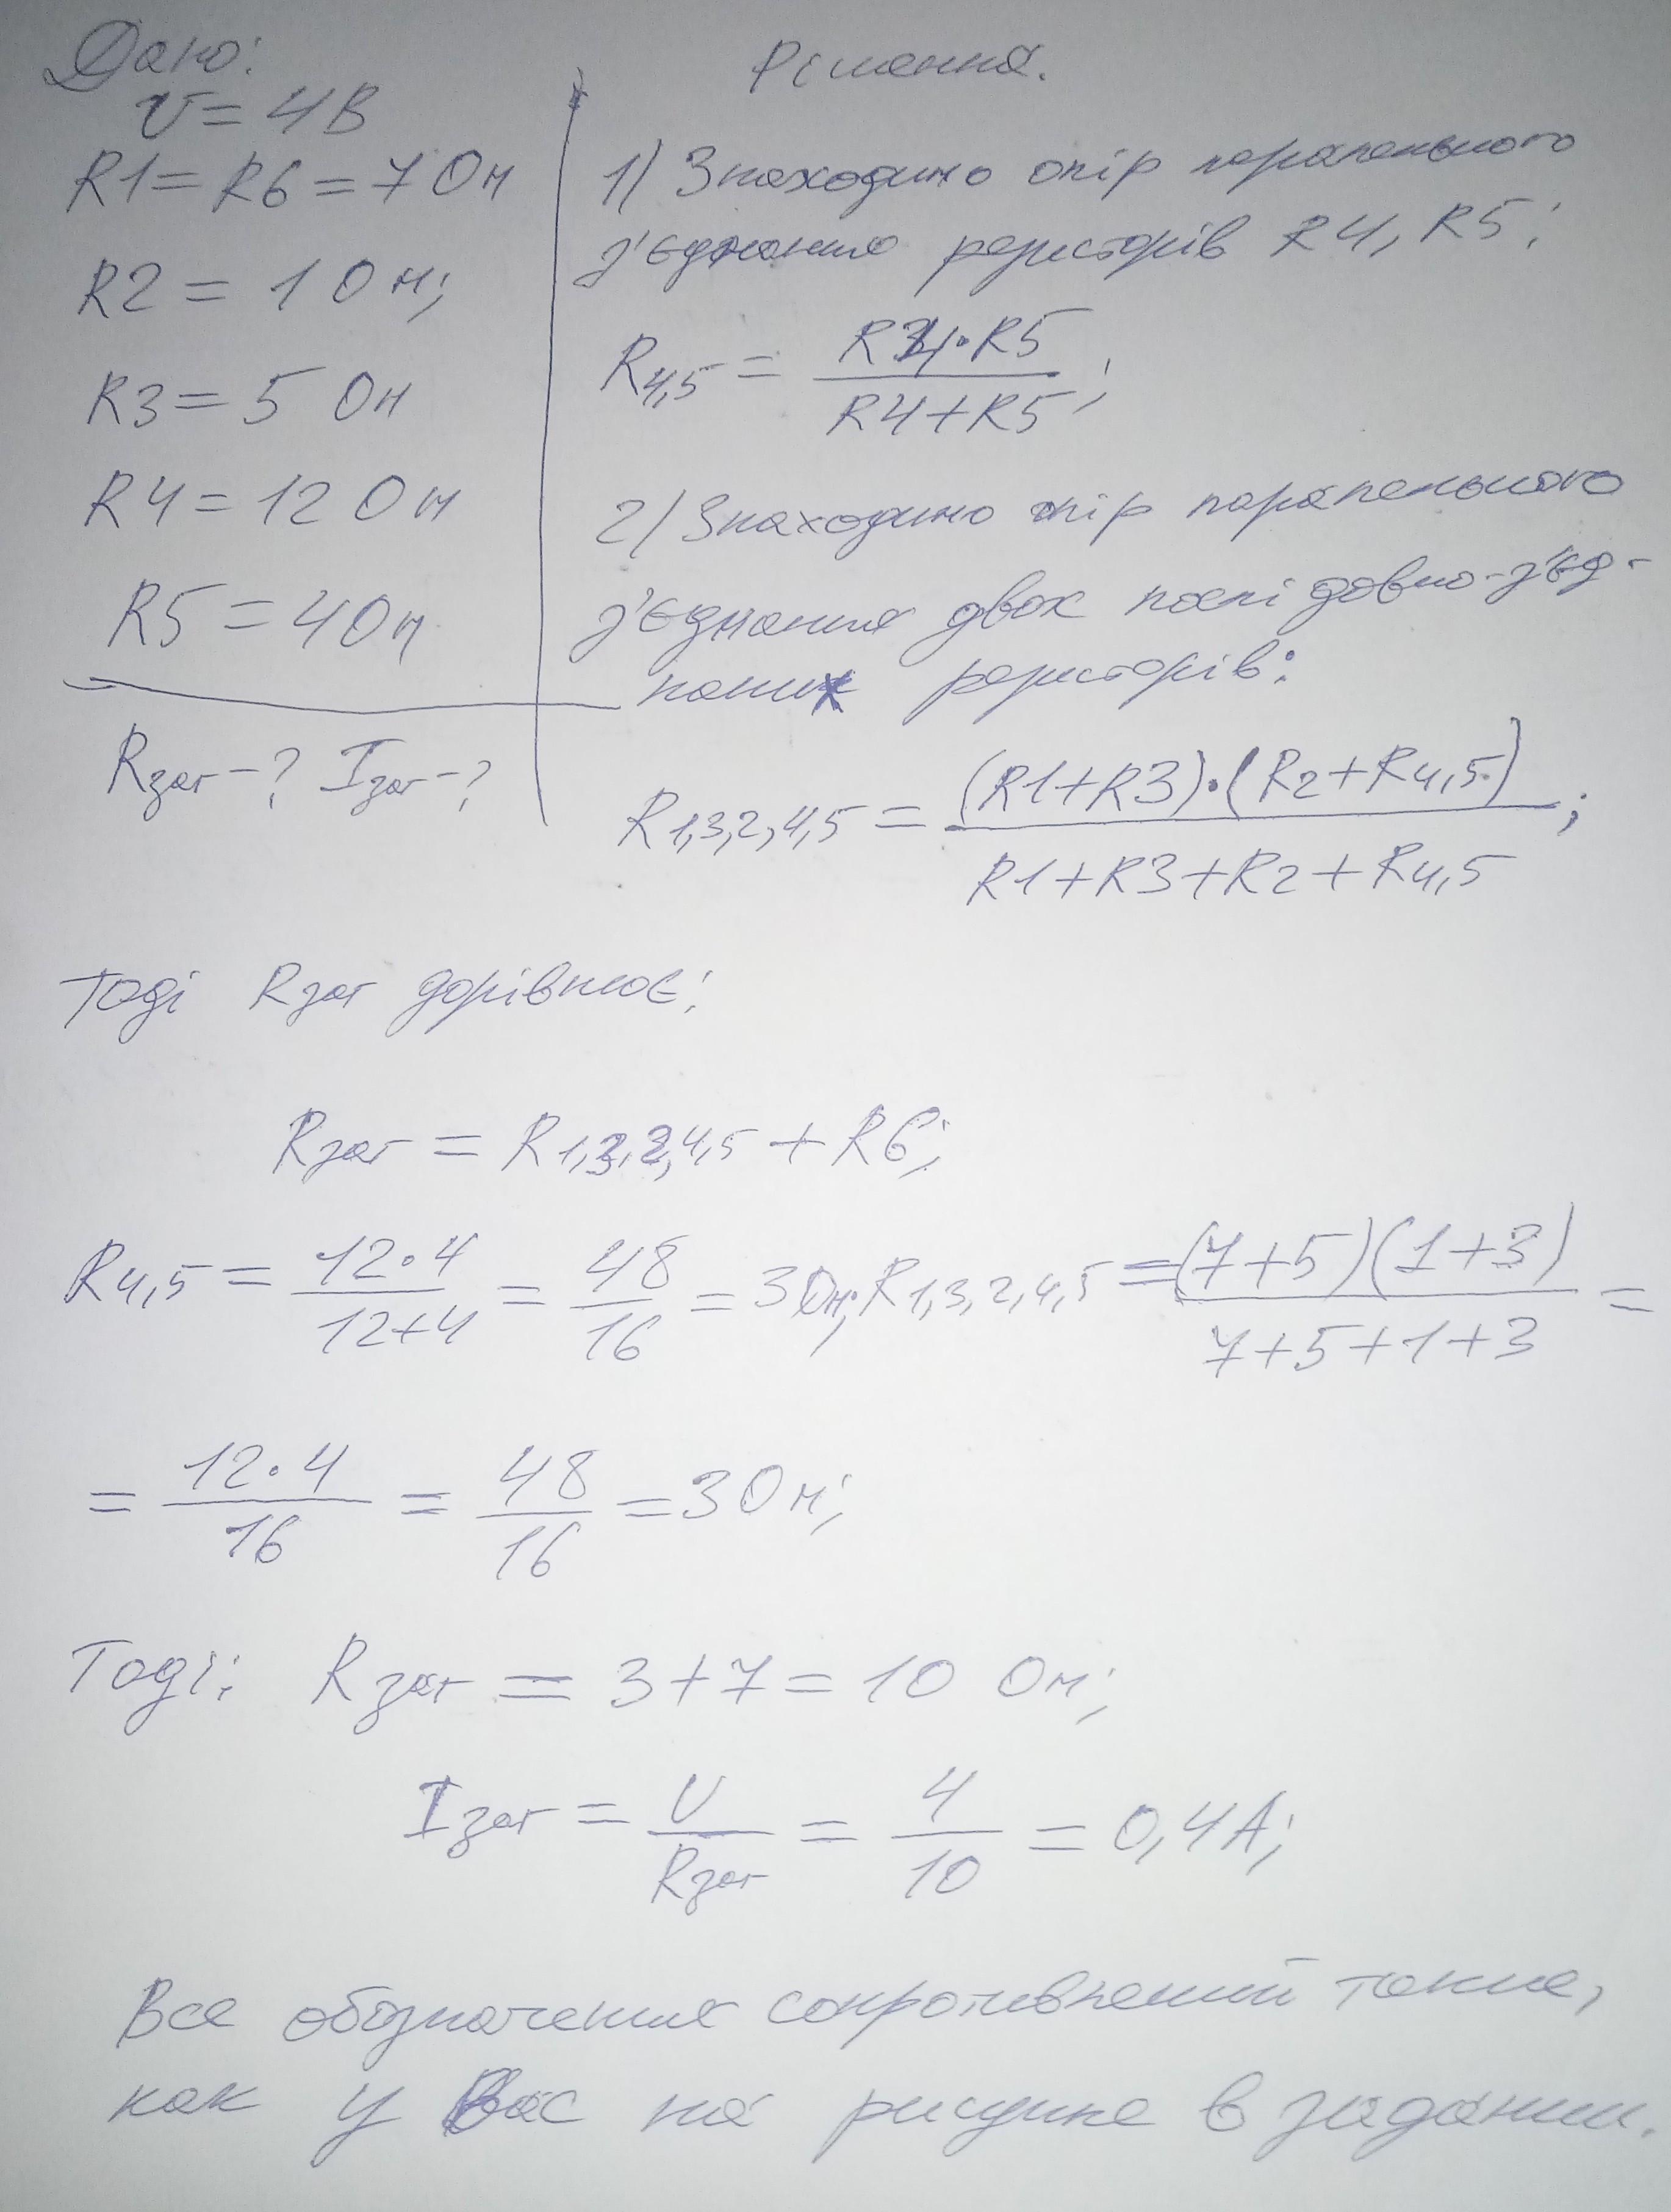 Дано:
U = 4В
R1 = R6 = 7 Ом
R2 = 1 Ом;
R3 = 5 Ом
R4 = 12 Ом
R5 = 4 Ом
Rзаг - ? Iзаг - ?
Рішення.
1) Знаходимо опір паралельного
з'єднання резисторів R4, R5:
R4,5 = R4·R5 / R4+R5;
2) Знаходимо опір паралельного
з'єднання двох послідовно-з'єд-
наних резисторів:
R1,3,2,4,5 = (R1+R3)·(R2+R4,5) / R1+R3+R2+R4,5;
Тоді Rзаг дорівнює:
Rзаг = R1,3,2,4,5 + R6;
R4,5 = 12·4 / 12+4 = 48 / 16 = 3 Ом; R1,3,2,4,5 = (7+5)(1+3) / 7+5+1+3 =
= 12·4 / 16 = 48 / 16 = 3 Ом;
Тоді: Rзаг = 3+7 = 10 Ом;
Iзаг = U / Rзаг = 4 / 10 = 0,4А;
Все обозначения сопротивлений такие,
как у Вас на рисунке в задании.